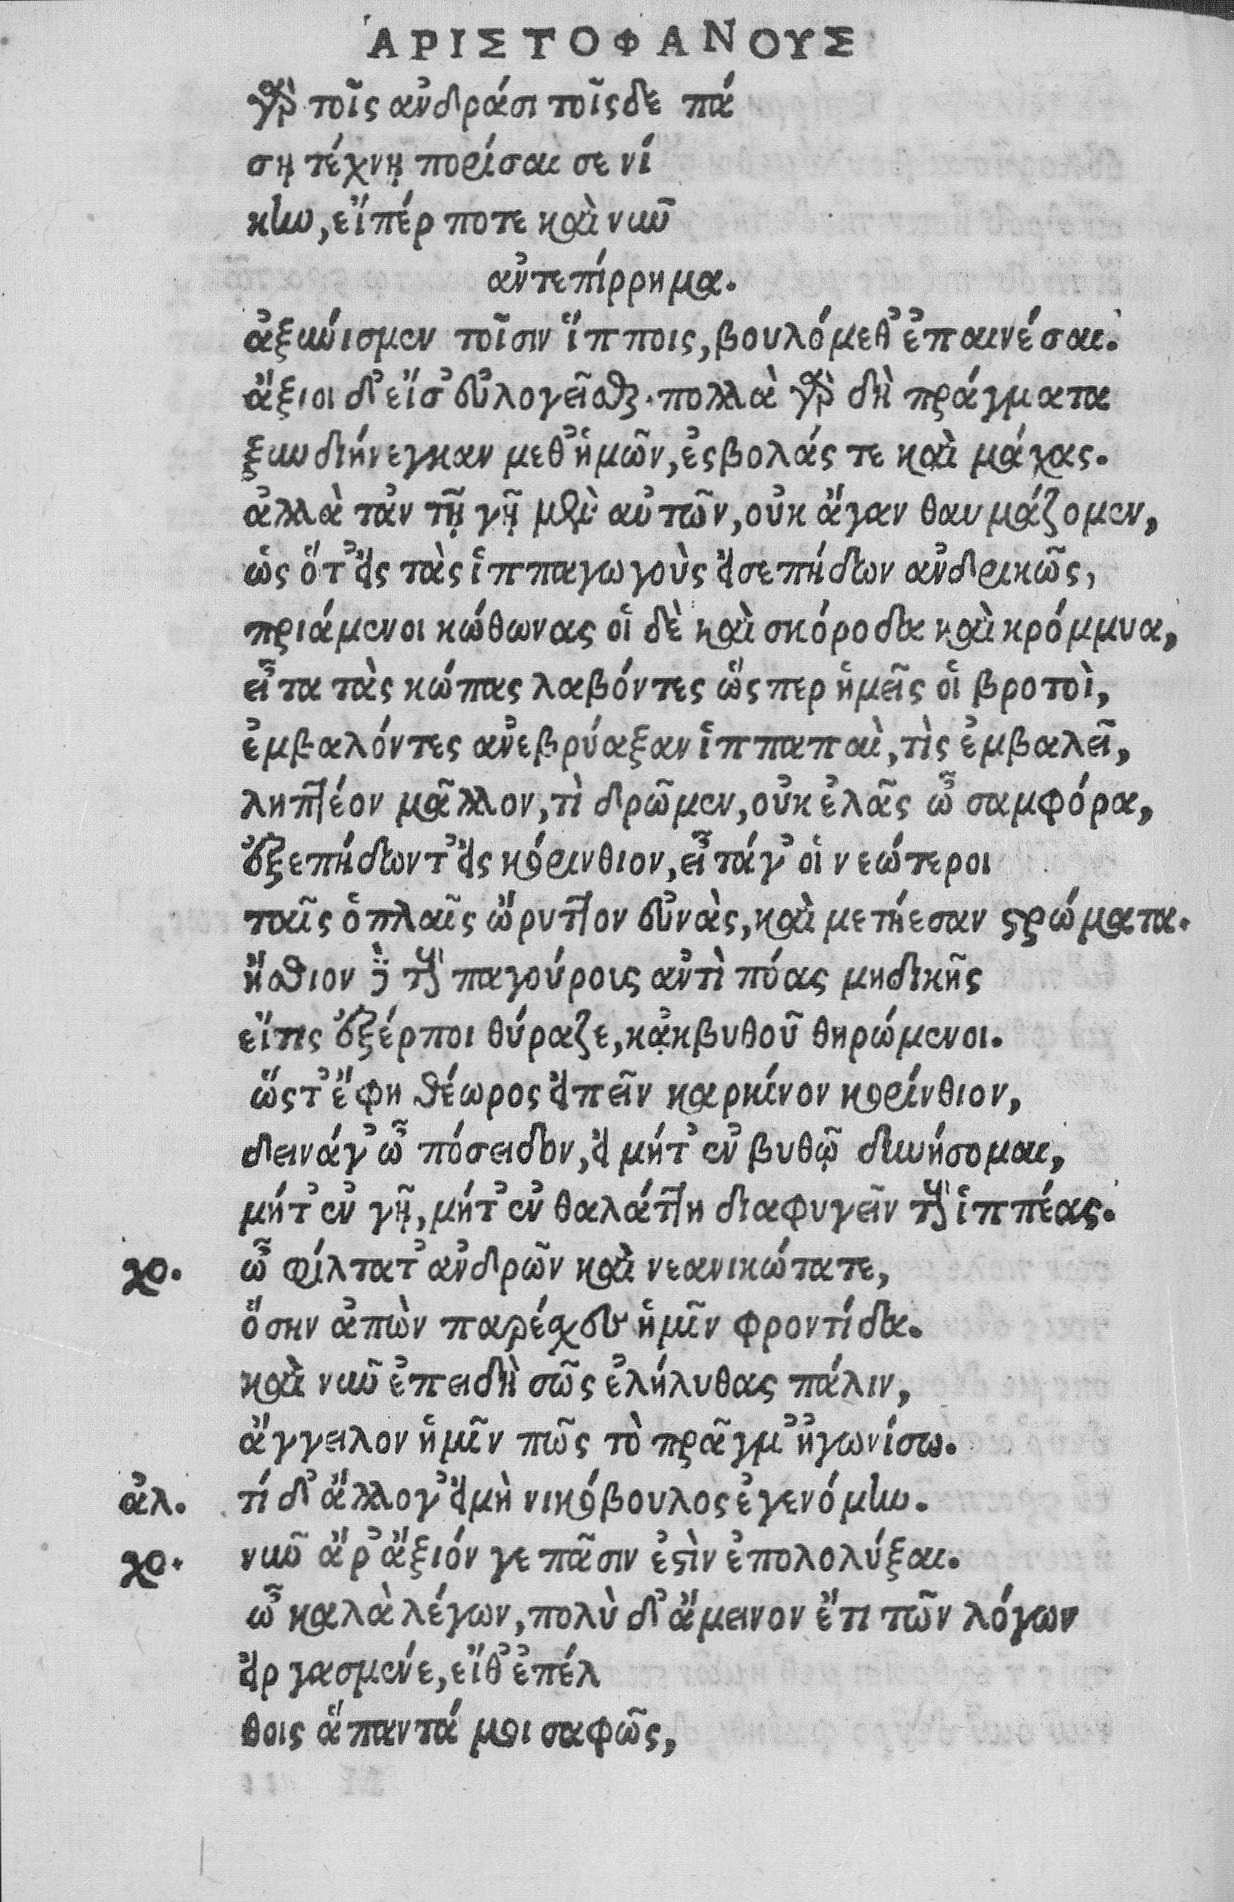 ἈΡΙΣΤΟΦΑΝΟΥΣ
γὰρ τοῖς ἀνδράσι τοῖςδε πά
σῃ τέχνῃ πορίσαι σε νί
κην, εἴπέρ ποτε καὶ νῦν
ἀντεπίρρημα.
ἀξιώισμεν τοῖσιν ἵπποις, βουλόμεθ' ἐπαινέσαι.
ἄξιοι δ' εἴσ' εὐλογεῖσθαι. πολλὰ γὰρ δὴ πράγματα
ξυνδιήνεγκαν μεθ' ἡμῶν, ἐςβολάς τε καὶ μάχας.
ἀλλὰ τἀν τῇ γῇ μὲν αὐτῶν, οὐκ ἄγαν θαυμάζομεν,
ὡς ὅτ' εἰς τὰς ἱππαγωγοὺς εἰσεπήδων ἀνδρικῶς,
πριάμενοι κώθωνας οἱ δὲ καὶ σκόροδα καὶ κρόμμυα,
εἶτα τὰς κώπας λαβόντες ὥςπερ ἡμεῖς οἱ βροτοὶ,
ἐμβαλόντες ἀνεβρύαξαν ἱππαπαὶ, τὶς ἐμβαλεῖ,
ληπτέον μᾶλλον, τὶ δρῶμεν, οὐκ ἐλᾶς ὦ σαμφόρα,
ἐξεπήδων τ' εἰς κόρινθιον, εἶτά γ' οἱ νεώτεροι
ταῖς ὁπλαῖς ὤρυττον εὐνὰς, καὶ μετῄεσαν στρώματα.
ἤσθιον δὲ τοὺς παγούρους ἀντὶ πόας μηδικῆς
εἴτις ἐξέρποι θύραζε, κᾀκβυθοῦ θηρώμενοι.
ὥςτ' ἔφη θέωρος εἰπεῖν καρκίνον κορίνθιον,
δεινά γ' ὦ πόσειδον, εἰ μήτ' ἐν βυθῷ δυνήσομαι,
μήτ' ἐν γῇ, μήτ' ἐν θαλάττη διαφυγεῖν τοὺς ἱππέας.
χο. ὦ φίλτατ' ἀνδρῶν καὶ νεανικώτατε,
ὅσην ἀπὼν παρέχες ἡμῖν φροντίδα.
καὶ νῦν ἐπειδὴ σῶς ἐλήλυθας πάλιν,
ἄγγειλον ἡμῖν πῶς τὸ πρᾶγμ' ἠγωνίσω.
ἀλ. τί δ' ἄλλο γ' εἰμὴ νικόβουλος ἐγενόμην.
χο. νῦν ἄρ' ἄξιόν γε πᾶσιν ἐστὶν ἐπολολύξαι.
ὦ καλὰ λέγων, πολὺ δ' ἄμεινον ἔτι τῶν λόγων
εἰργασμένε, εἴθ' ἐπέλ
θοις ἅπαντά μοι σαφῶς,